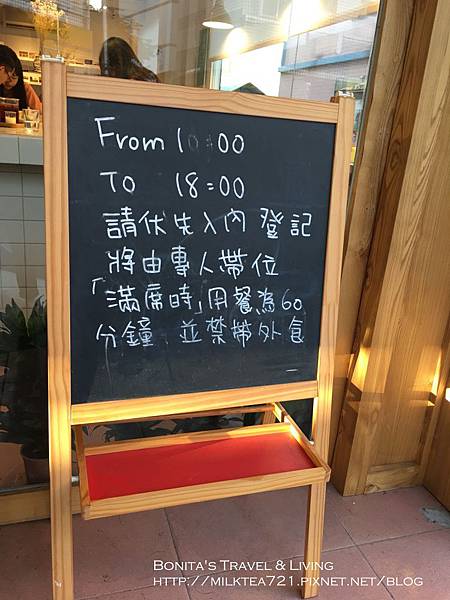 From 10:00
To 18:00
請伏先入內登記
將由專人帶位
「滿席時」用餐為60
分鐘 並禁帶外食
Bonita's Travel & Living
http://milktea721.pixnet.net/blog